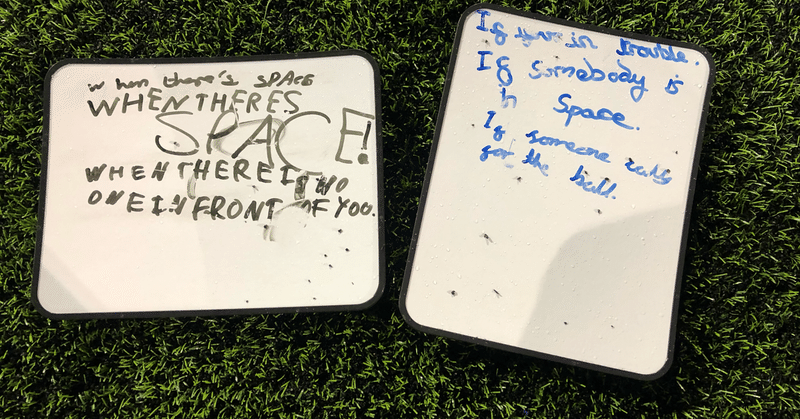 when there's SPACE
WHEN THERES
SPACE!
WHEN THERE IS NO
ONE IN FRONT OF YOU.
If your in trouble.
If somebody is
in Space.
If someone calls
for the ball.